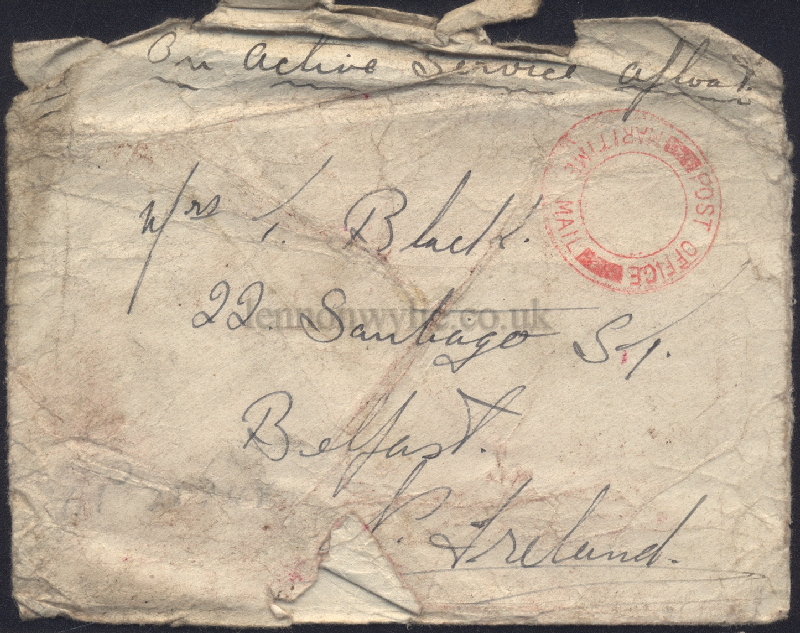 On Active Service afloat
POST OFFICE
MARITIME MAIL
Mrs I. Black.
22. Santiago St.
lennonwylie.co.uk
Belfast.
N. Ireland.